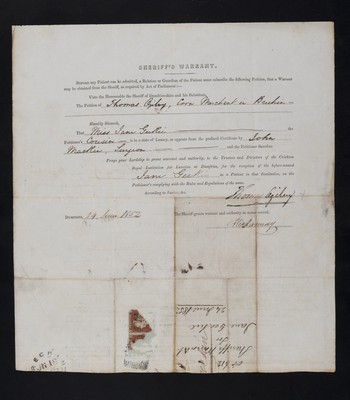 SHERIFF'S WARRANT.
BEFORE any Patient can be admitted, a Relation or Guardian of the Patient must subscribe the following Petition, that a Warrant
may be obtained from the Sheriff, as required by Act of Parliament:—
Unto the Honourable the Sheriff of Dumfriesshire and his Substitutes,
The Petition of Thomas Ogilvy, Corn Merchant in Brechin
Humbly Sheweth,
That Miss Jane Guthrie the
Petitioner's Cousin, is in a state of Lunacy, as appears from the prefixed Certificate by John
Mackie, Surgeon and the Petitioner therefore
Prays your Lordship to grant warrant and authority, to the Trustees and Directors of the Crichton
Royal Institution for Lunatics at Dumfries, for the reception of the before-named
Jane as a Patient in that Institution, on the
Petitioner's complying with the Rules and Regulations of the same.
According to Justice, &c.
Thomas Ogilvy
DUMFRIES, 14 June 1852 The Sheriff grants warrant and authority as above craved.
Sheriff's Warrant
for
Jane